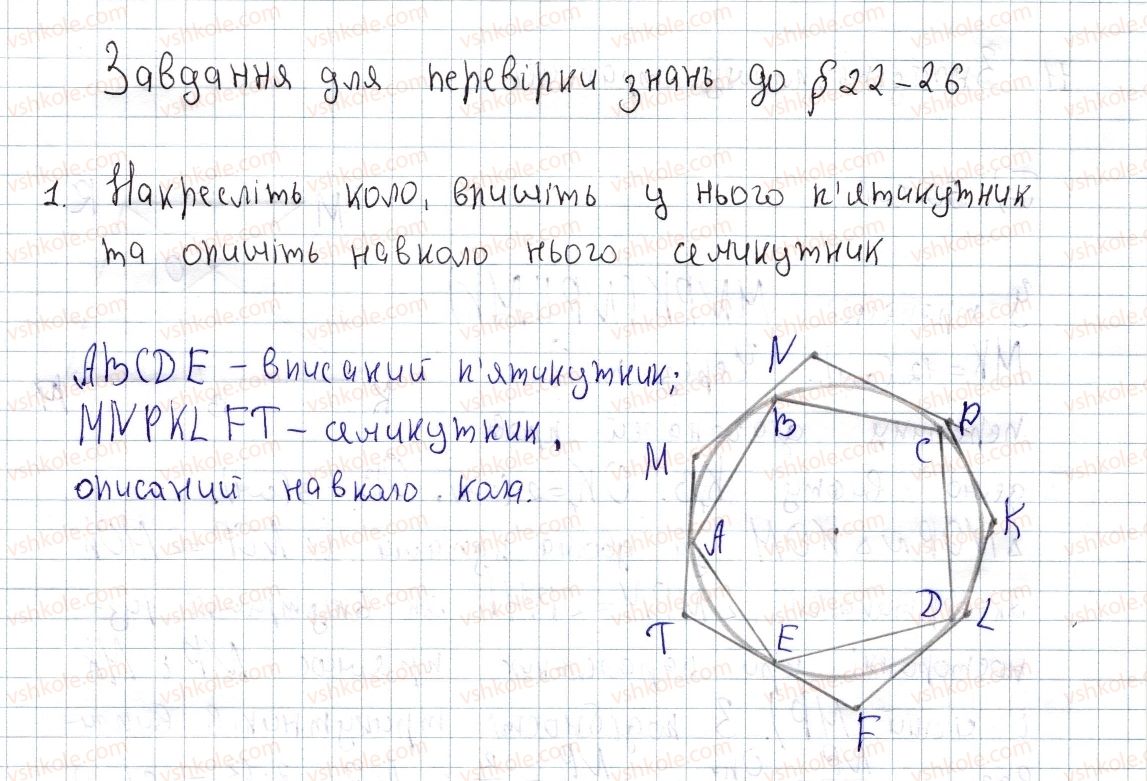 Завдання для перевірки знань до §22-26
1. Накресліть коло, впишіть у нього п'ятикутник
та опишіть навколо нього семикутник
ABCDE - вписаний п'ятикутник;
MNPKLFT - семикутник,
описаний навколо кола.
N
B
P
C
M
K
A
D
L
T
E
F
vshkole.com